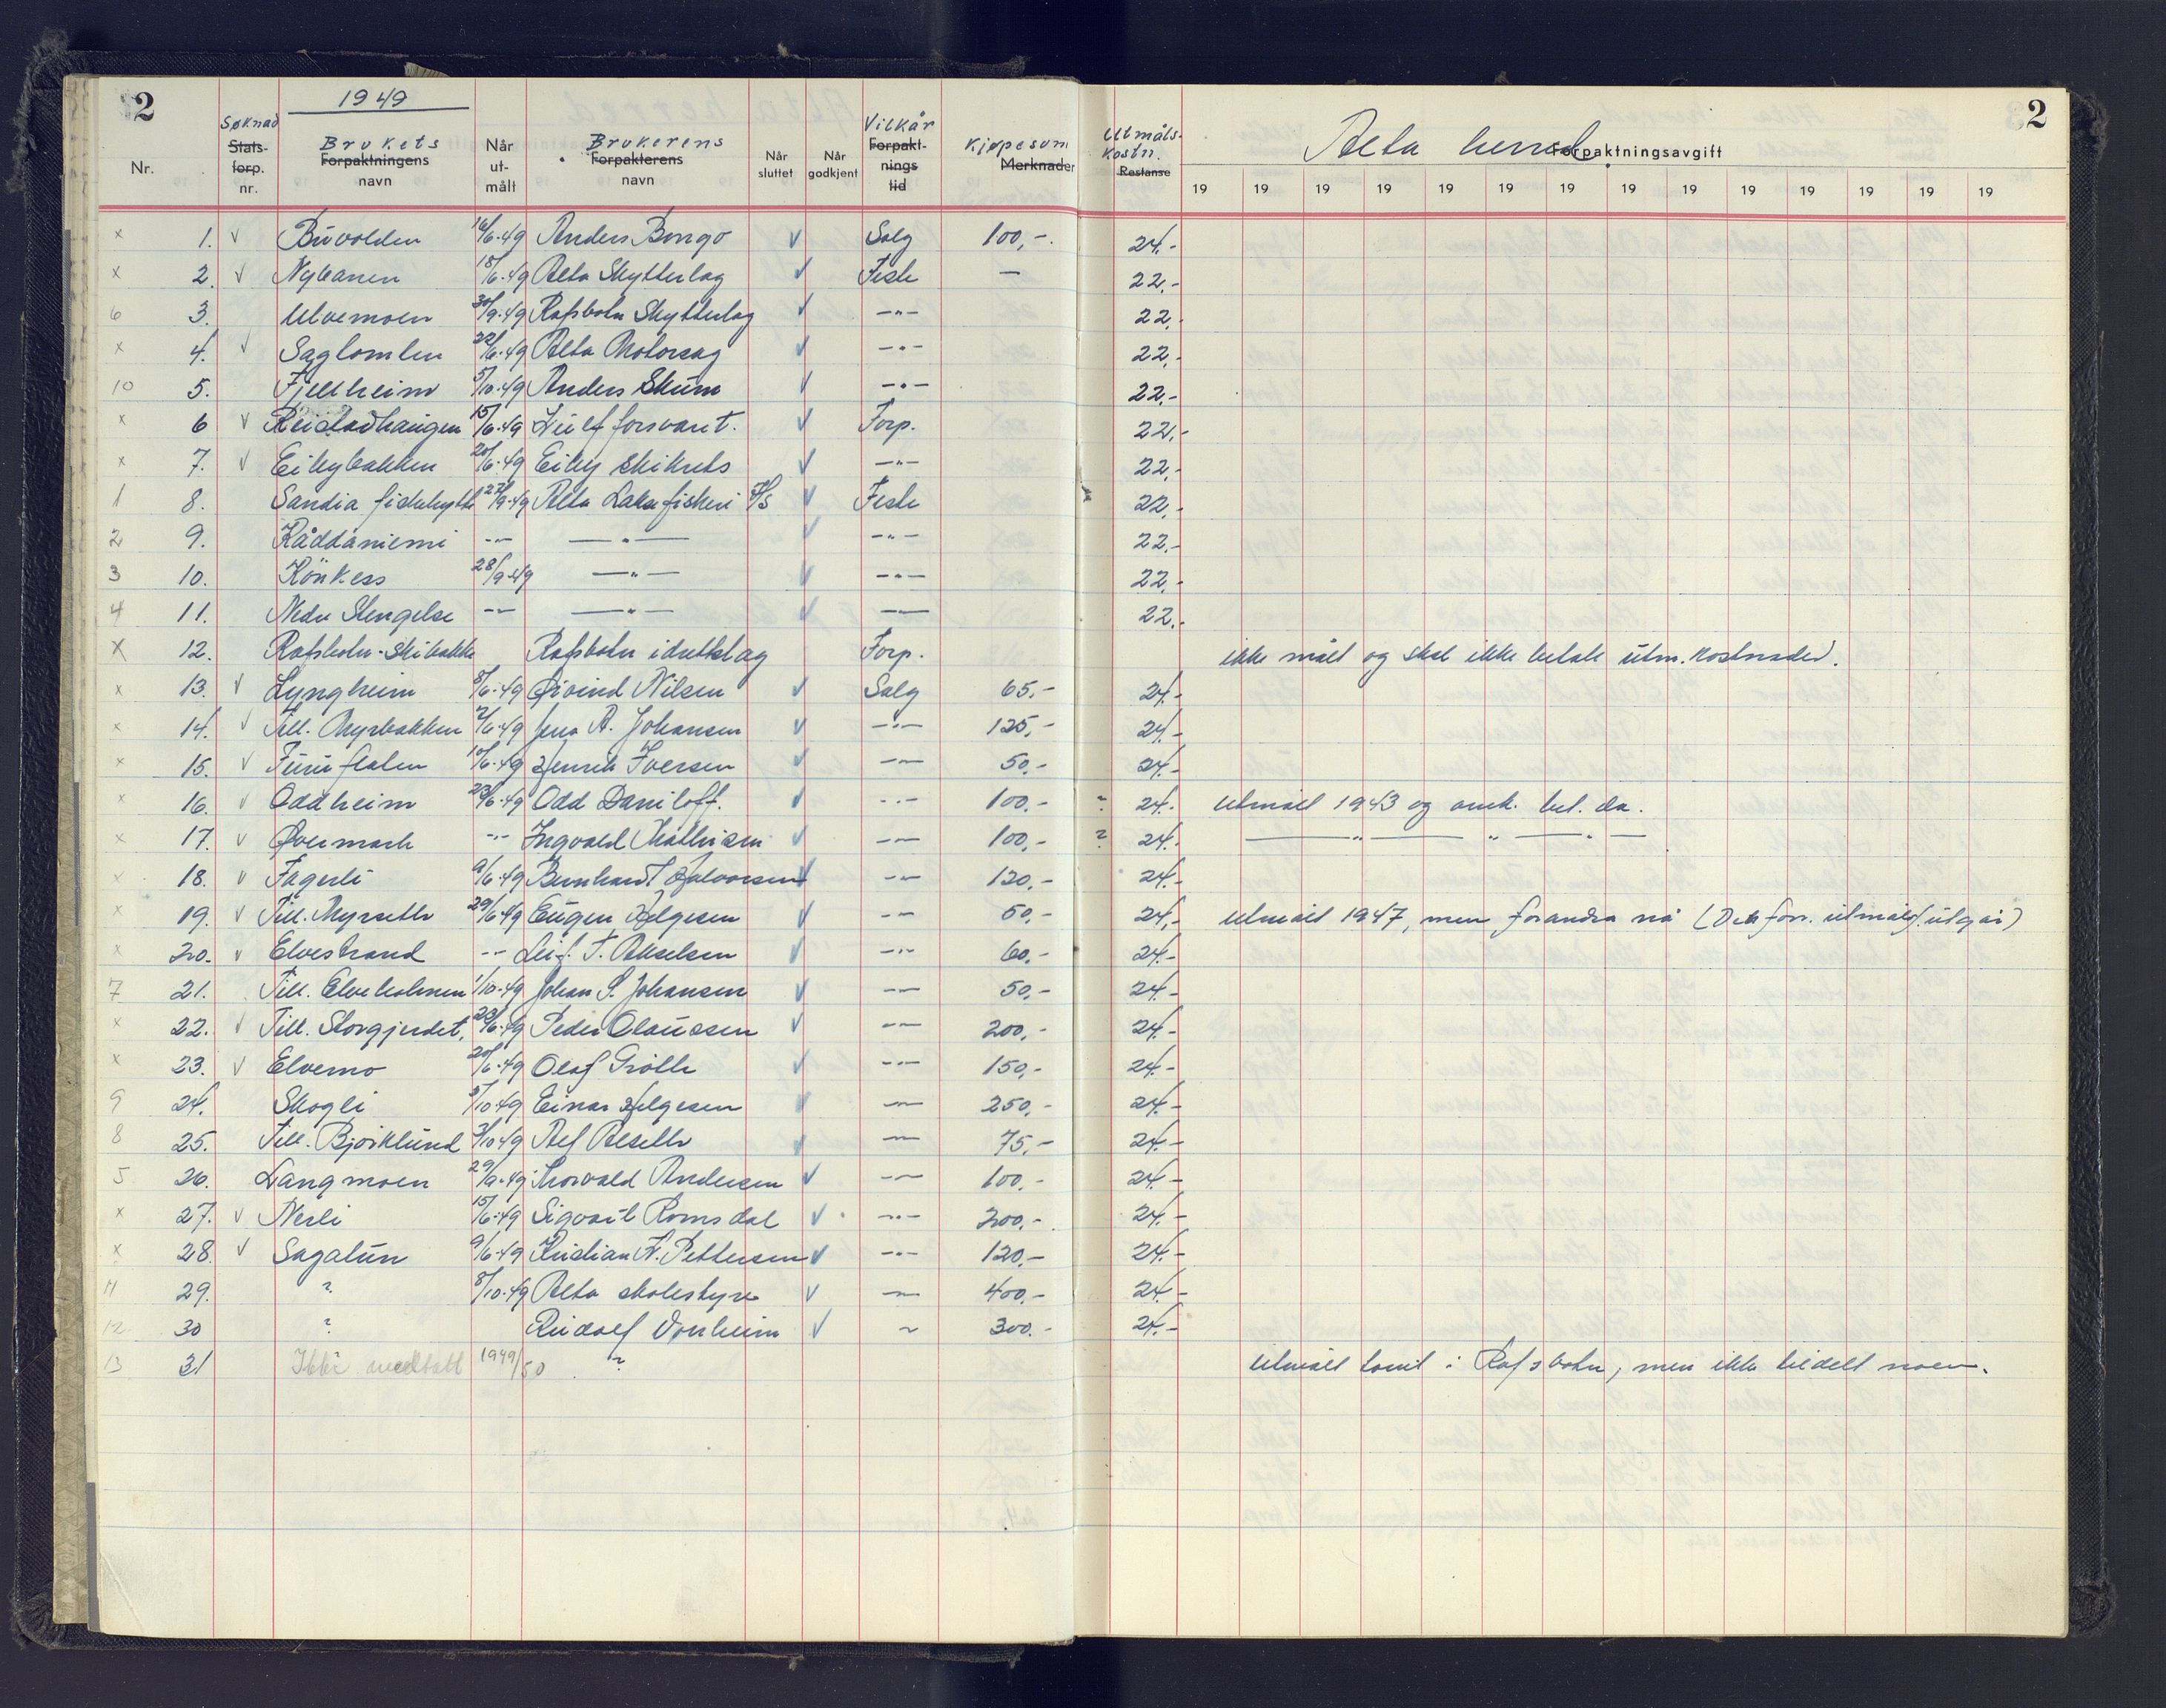 2 1949 Alta herred 2
Nr. Søknad Stats-forp. nr. Brukets Forpaktningens navn Når ut-målt Brukerens Forpakterens navn Når sluttet Når godkjent Vilkår Forpakt-nings tid Kjøpesum Merknader Utmåls-kostn. Restanse Forpaktningsavgift
19 19 19 19 19 19 19 19 19 19 19 19 19 19
x 1. v Buvolden 16/6-49 Anders Bongo v Salg 100,- 24.-
x 2. v Nybanen 18/6-49 Alta Skytterlag v Feste — 22,-
6 3. Ulvemoen 30/9-49 Rafsbotn Skytterlag v —"— 22,-
x 4. v Saglomlen 22/6-49 Alta Motorsag v —"— 22,-
10 5. Fjellheim 5/10-49 Anders Skum v —"— 22,-
x 6 v 15/6-49 forsvaret. v Forp. 22,-
x 7. v Eibybakken 20/6-49 Eiby skikrets v —"— 22,-
1 8. Sandia fiskehytte 27/9-49 Alta Laksefiskeri I/S v Feste 22,-
2 9. Råddaniemi —"— —"— v —"— 22,-
3 10. Kønkess 28/9-49 —"— v —"— 22,-
4 11. Nedre Stengelse —"— —"— v —"— 22,-
X 12. Rafsbotn-skibakke Rafsbotn idrettslag Forp. ikke målt og skal ikke betale utm. kostnader.
x 13. v Lyngheim 8/6-49 Øivind Nilsen v Salg 65,- 24.-
x 14. v Till. Myrbakken 2/6-49 Jens A. Johansen v —"— 125,- 24.-
x 15. v Furuflaten 10/6-49 Henrik Iversen v —"— 50,- 24.-
x 16. v Oddheim 23/6-49 Odd Daniloff. v —"— 100,- ? 24.- utmålt 1943 og omk. bet. da.
x 17. v Øvermark —"— Ingvald Mathisen v —"— 100,- ? 24.- —"— " —"—
x 18. v Fagerli 9/6-49 Bernhardt Halvorsen v —"— 120,- 24.-
x 19. v Till. Myrseth 29/6-49 Eugen Helgesen v —"— 50,- 24,- utmålt 1947, men forandra nå (Det forr. utmålt utgår)
x 20. v Elvestrand —"— Leif. T. Akselsen v —"— 60,- 24.-
7 21. Till. Elveholmen 1/10-49 Johan S. Johansen v —"— 50,- 24.-
x 22. v Till. Storgjerdet, 23/6-49 Peder Olaussen v —"— 200,- 24.-
x 23. v Elvemo 20/6-49 Olaf v —"— 150,- 24.-
9 24. Skogli 5/10-49 Einar Helgesen v —"— 250,- 24.-
8 25. Till. Bjørklund 3/10-49 Alf v —"— 75,- 24.-
5 26. Langmoen 29/9-49 Thorvald Andersen v —"— 100,- 24.-
x 27. v Nerli 15/6-49 Sigvart Romsdal v —"— 200,- 24.-
x 28. v Sagatun 9/6-49 Kristian A. Pettersen v —"— 120,- 24.-
11 29. ? 8/10-49 Alta skolestyre v — 400,- 24.-
12 30 ? Rudolf Vonheim v ~ 300.- 24.-
13 31 Ikke medtatt 1949/50 ? utmålt tomt i Rafsbotn, men ikke tildelt noen.